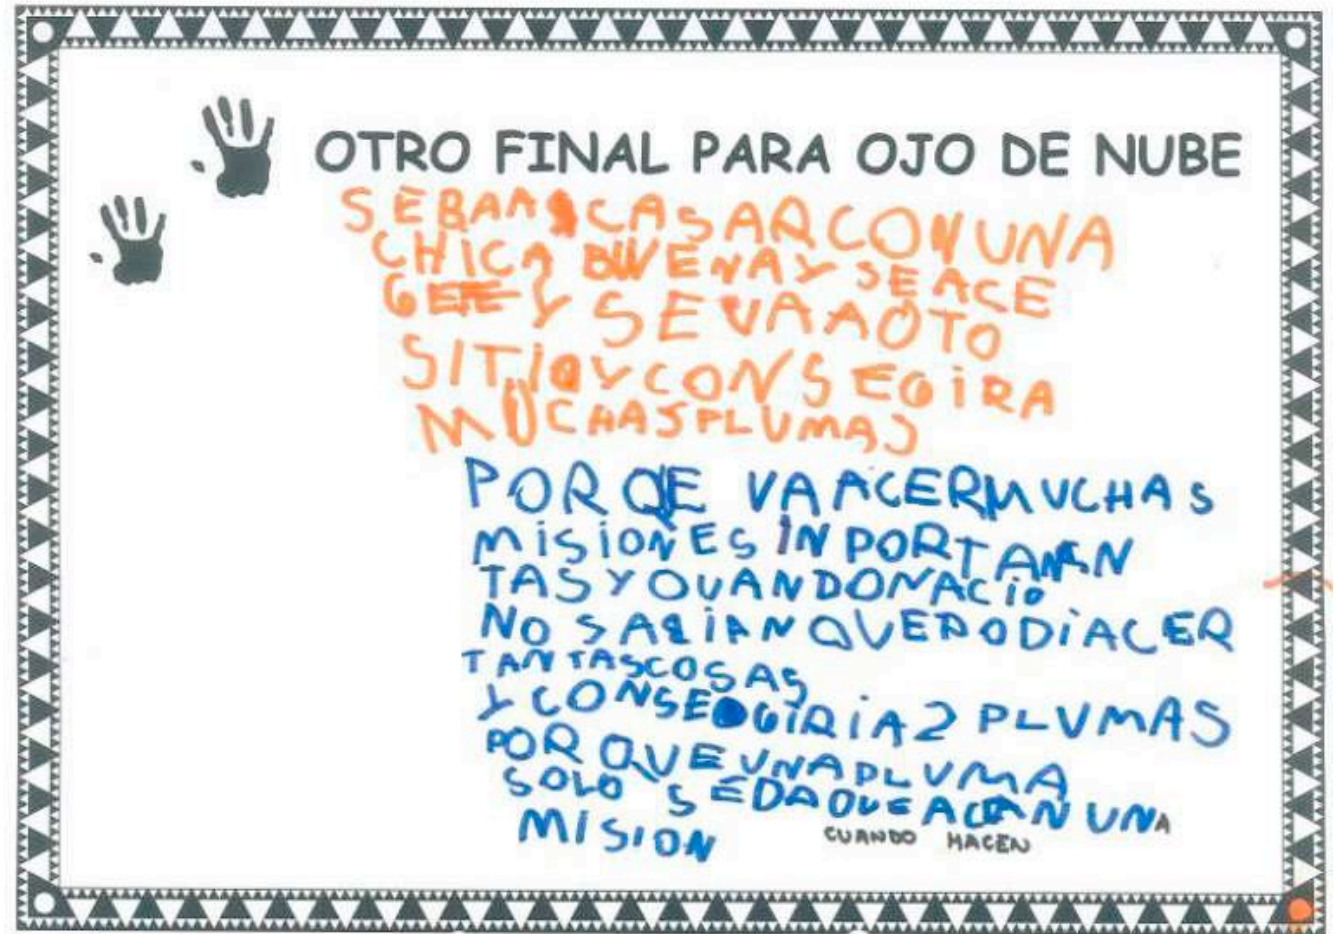 OTRO FINAL PARA OJO DE NUBE
SEBAA CASAR CON UNA
CHICA BUENA Y SE ACE
GEFE Y SE VA A OTO
SITIO Y CONSEGIRA
MUCHAS PLUMAS
PORQE VA ACER MUCHAS
MISIONES INPORTAN
TAS Y QUANDO NACIO
NO SABIAN QUE PODIACER
TANTASCOSAS
Y CONSEGIRIA 2 PLUMAS
POR QUE UNA PLUMA
SOLO SE DA QUE ACAN UNA
CUANDO HACEN
MISION